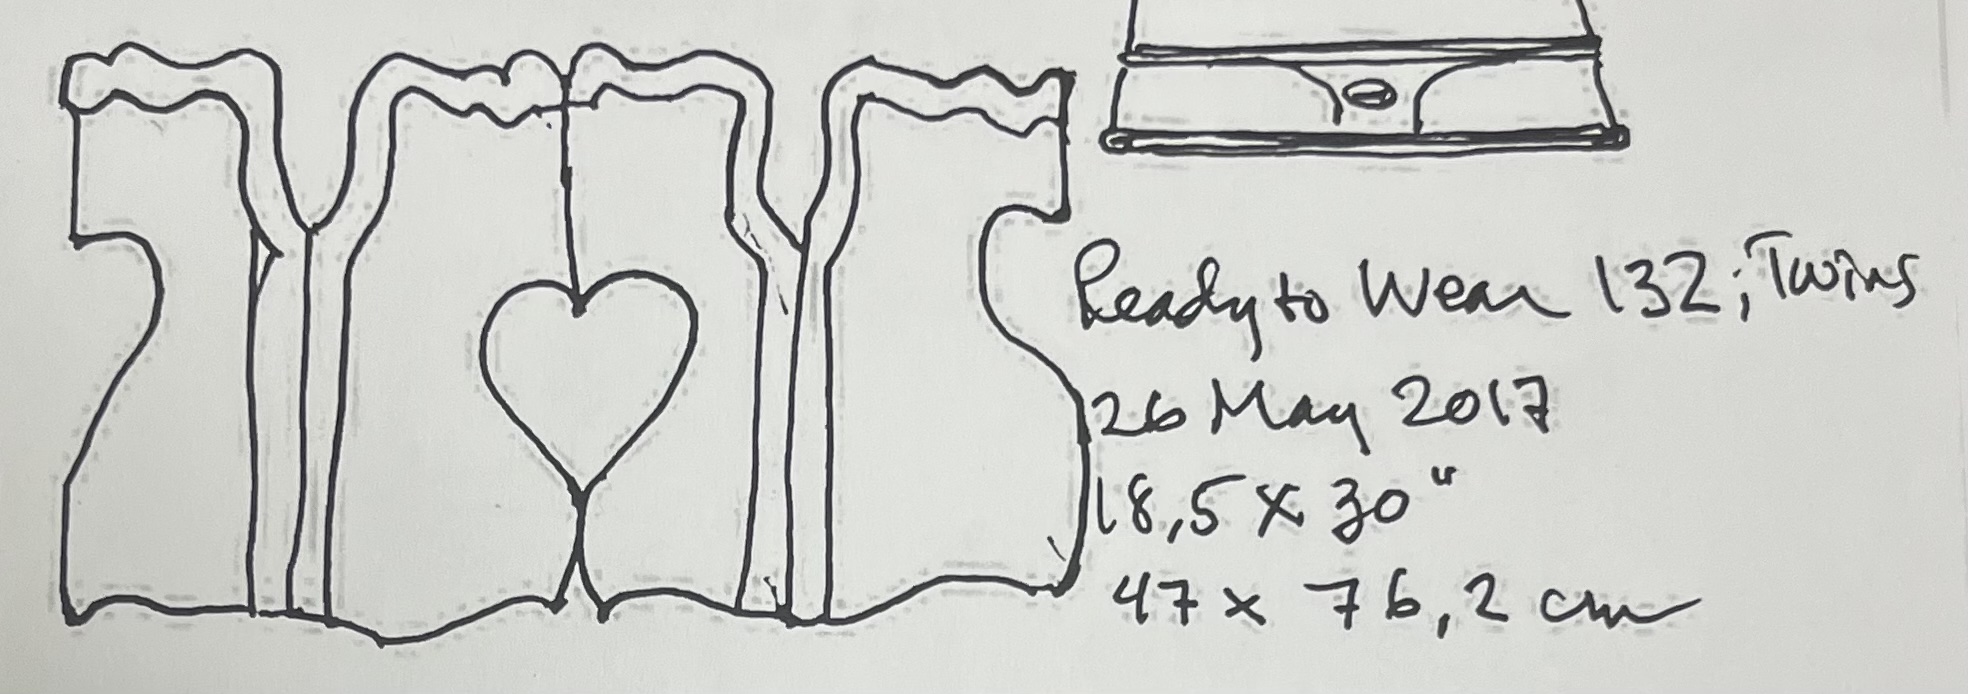 Ready to Wear 132; Twins
26 May 2017
18,5 x 30"
47 x 76,2 cm